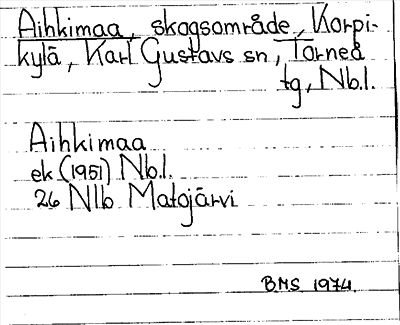 Aihkimaa, skogsområde, Korpi-
kylä, Karl Gustavs sn, Torneå
tg, Nb.l.
Aihkimaa
ek (1951) Nb.l.
26 Nlb Matojärvi
BMS 1974.